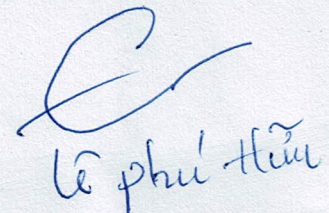 Lê phú Hữu